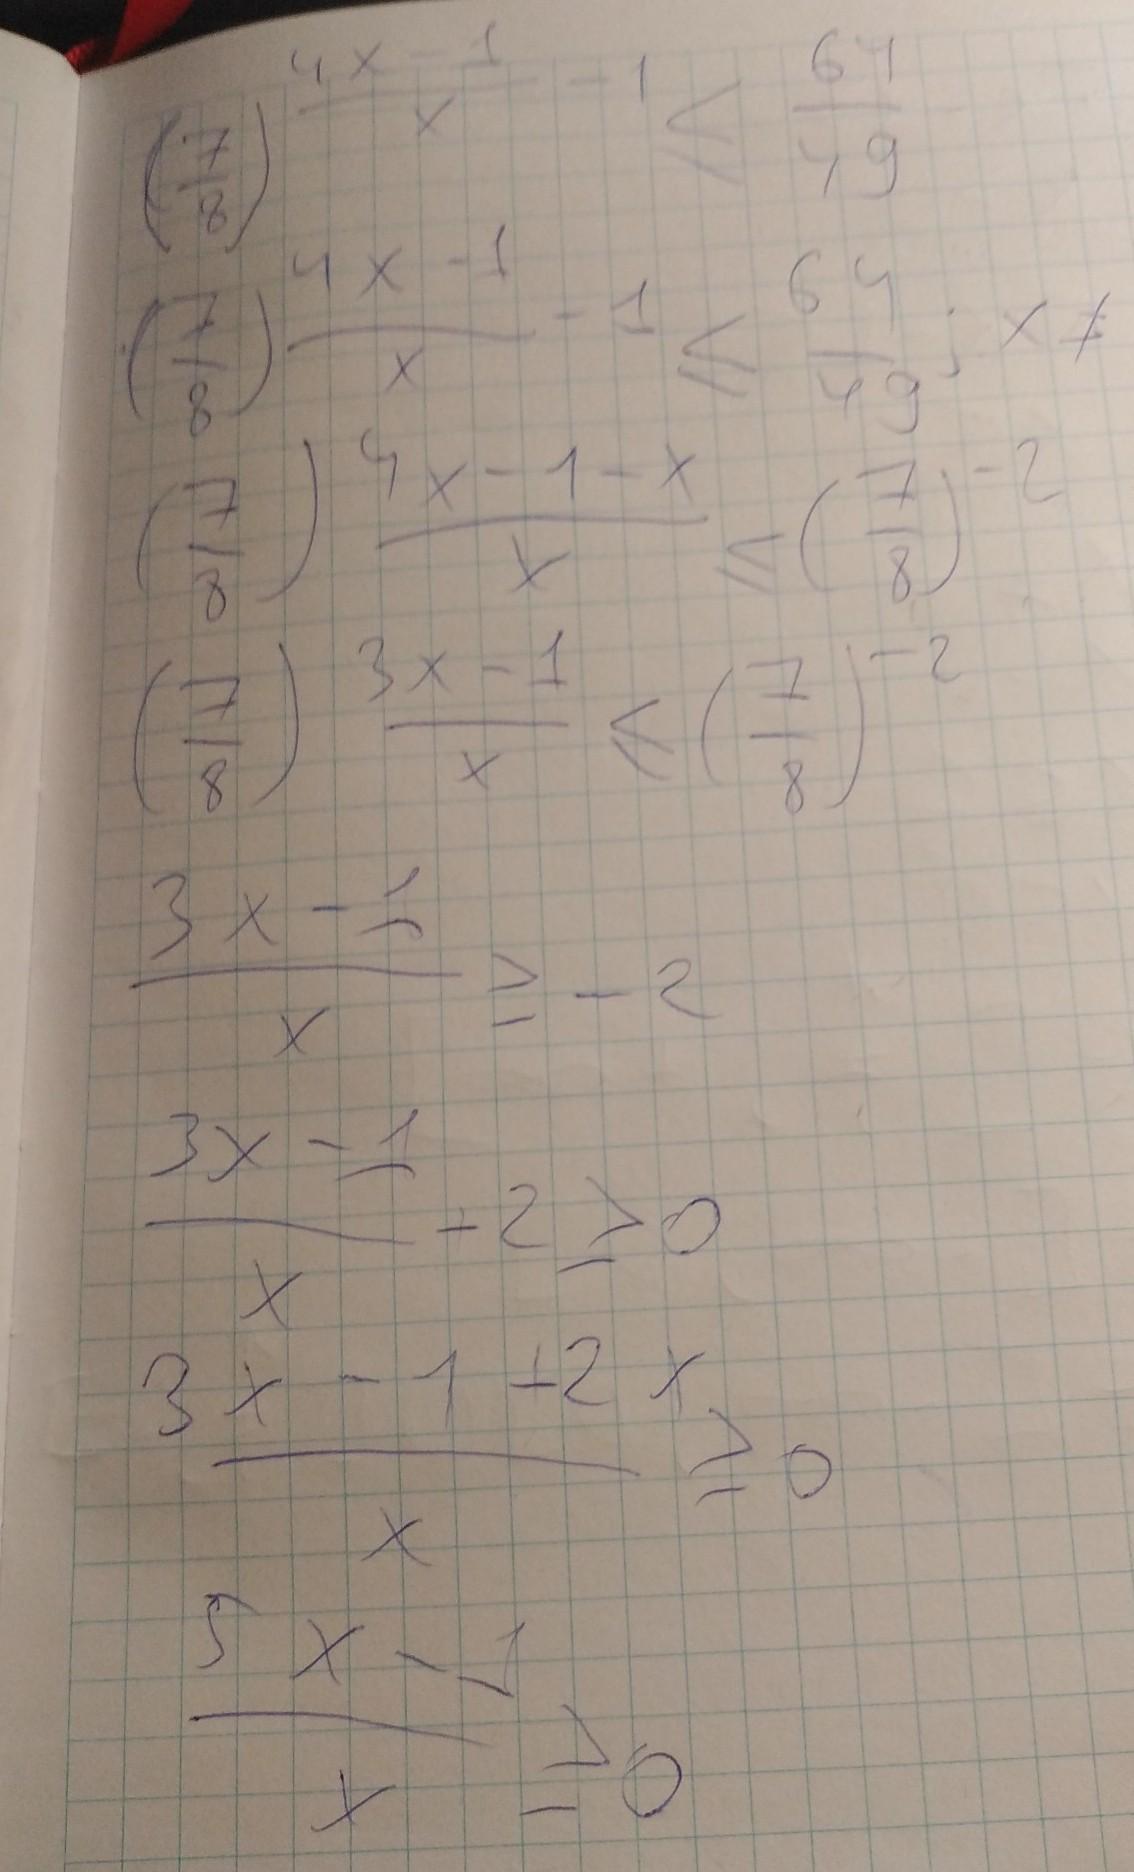 (7/8)^((4x-1)/x - 1) ≤ 64/49
(7/8)^((4x-1)/x - 1) ≤ 64/49; x ≠
(7/8)^((4x-1-x)/x) ≤ (7/8)^(-2)
(7/8)^((3x-1)/x) ≤ (7/8)^(-2)
(3x-1)/x ≥ -2
(3x-1)/x + 2 ≥ 0
(3x-1+2x)/x ≥ 0
(5x-1)/x ≥ 0